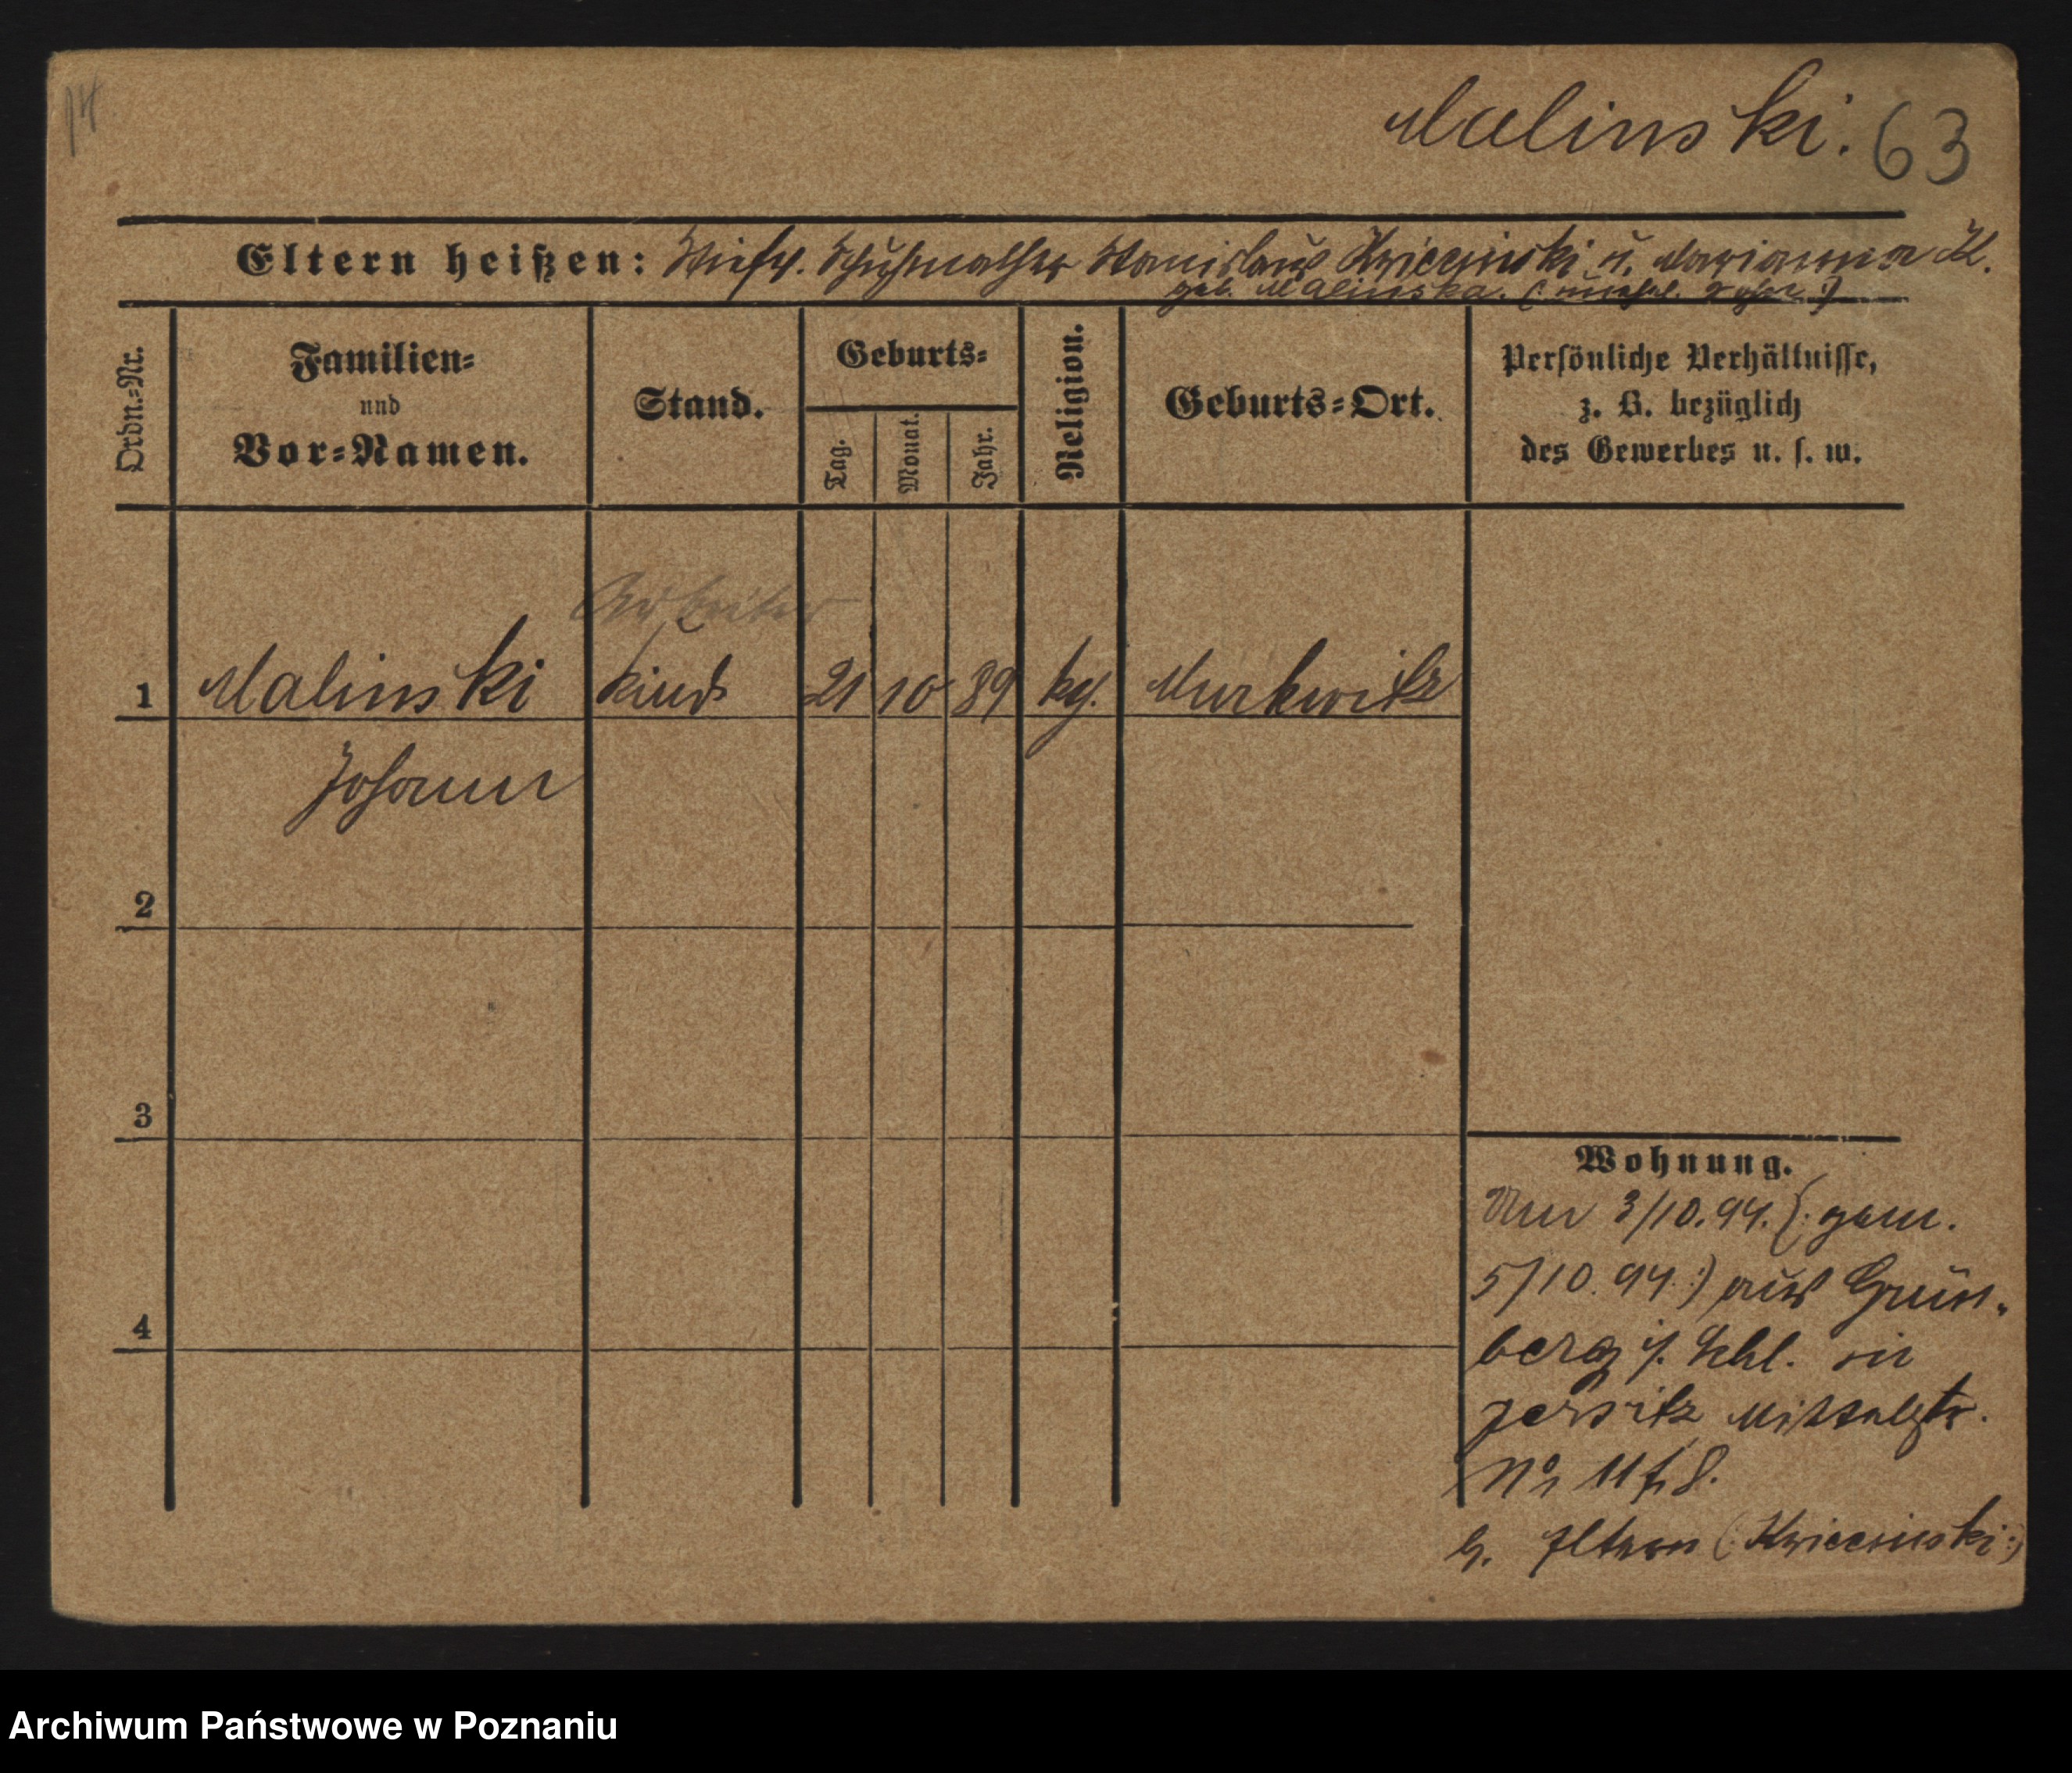 Malinski. 63
Eltern heißen: Stiefv. Schuhmacher Stanislaus Kwiecinski u. Marianna K.
geb. Malinska. (: unehel. Sohn :)
Ordn.=Nr.
Familien=
und
Vor=Namen.
Stand.
Geburts=
Tag.
Monat.
Jahr.
Religion.
Geburts=Ort.
Persönliche Verhältnisse,
z. B. bezüglich
des Gewerbes u. s. w.
Arbeiter
1 Malinski Kind 21 10 89 kg. Murkwitz
Johann
2
3
4
Wohnung.
Am 3/10.94. (: gem.
5/10.94 :) aus Grün-
berg i/. Schl. in
Jersitz Mittelstr.
No 11
b. Eltern (: Kwiecinski :)
Archiwum Państwowe w Poznaniu